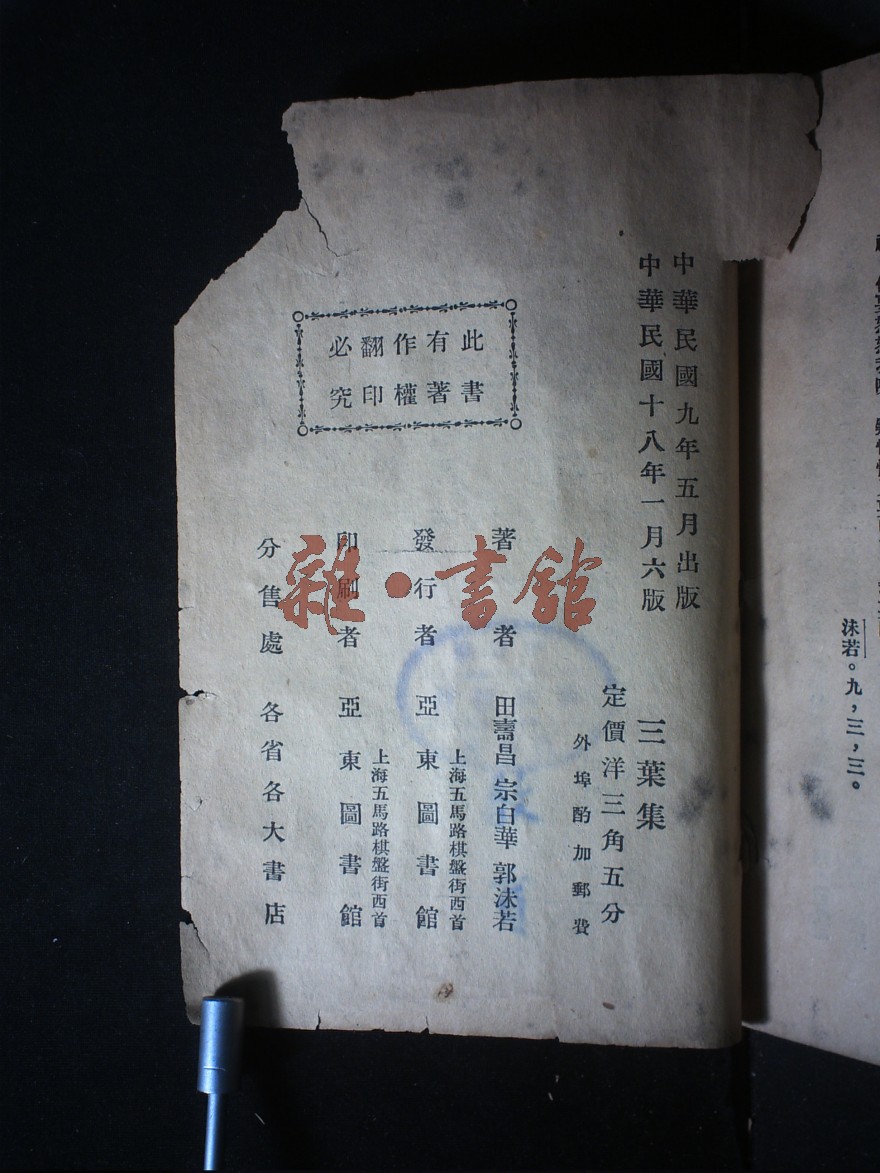 中華民國九年五月出版
中華民國十八年一月六版
三葉集
定價洋三角五分
外埠酌加郵費
著者 田壽昌 宗白華 郭沫若
上海五馬路棋盤街西首
發行者 亞東圖書館
上海五馬路棋盤街西首
印刷者 亞東圖書館
分售處 各省各大書店
此書
有著
作權
翻印
必究
雜·書館
沫若。九，三，三。